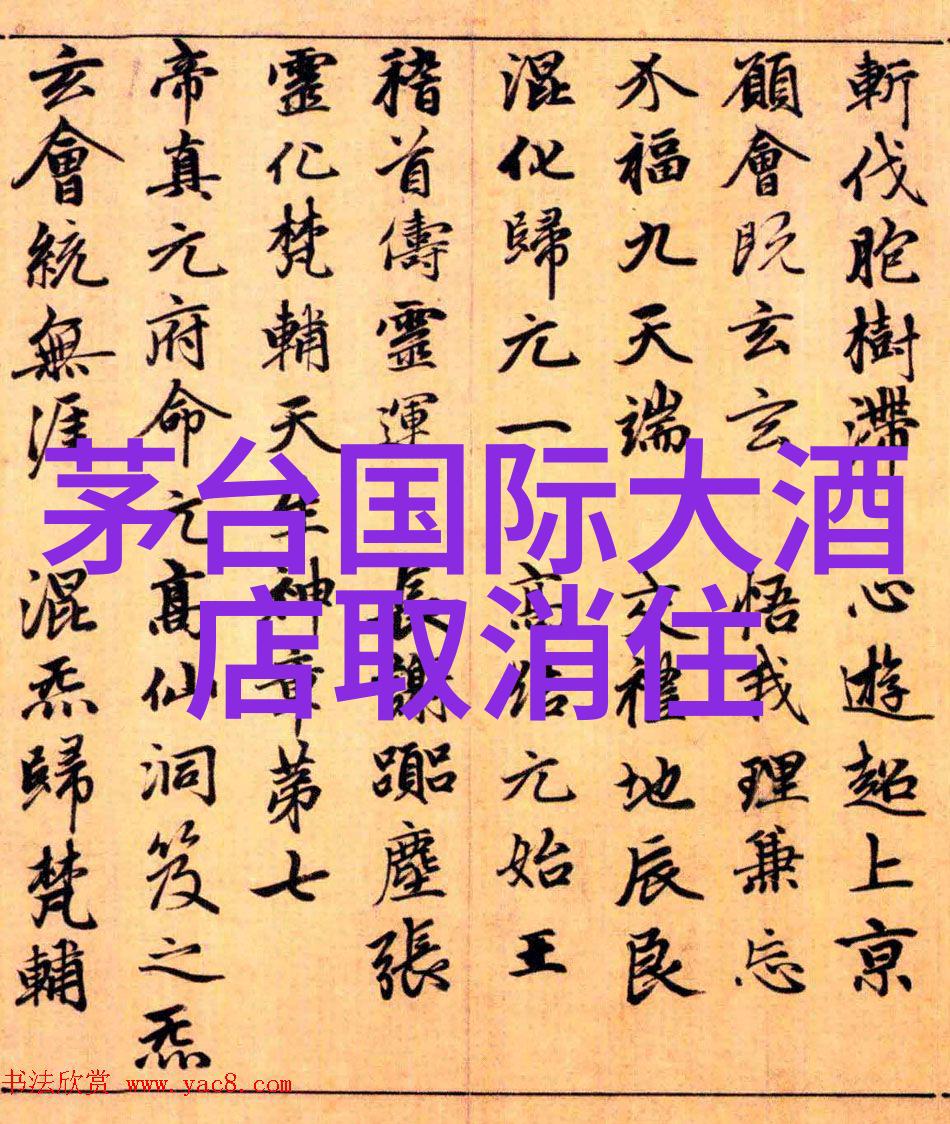 斬伐胞樹滯 心遊超上京
願會既玄玄 悟我理兼忘
氽福九天端 交禮地辰良
混化歸元一 高結元始王
稽首儔靈運 長謝躡塵張
靈化梵輔天 生神章第七
帝真元府命元高仙洞笈之炁
玄會統無涯 混炁歸梵輔
茅台国际大酒
店取消住
书法欣赏 www.yac8.com